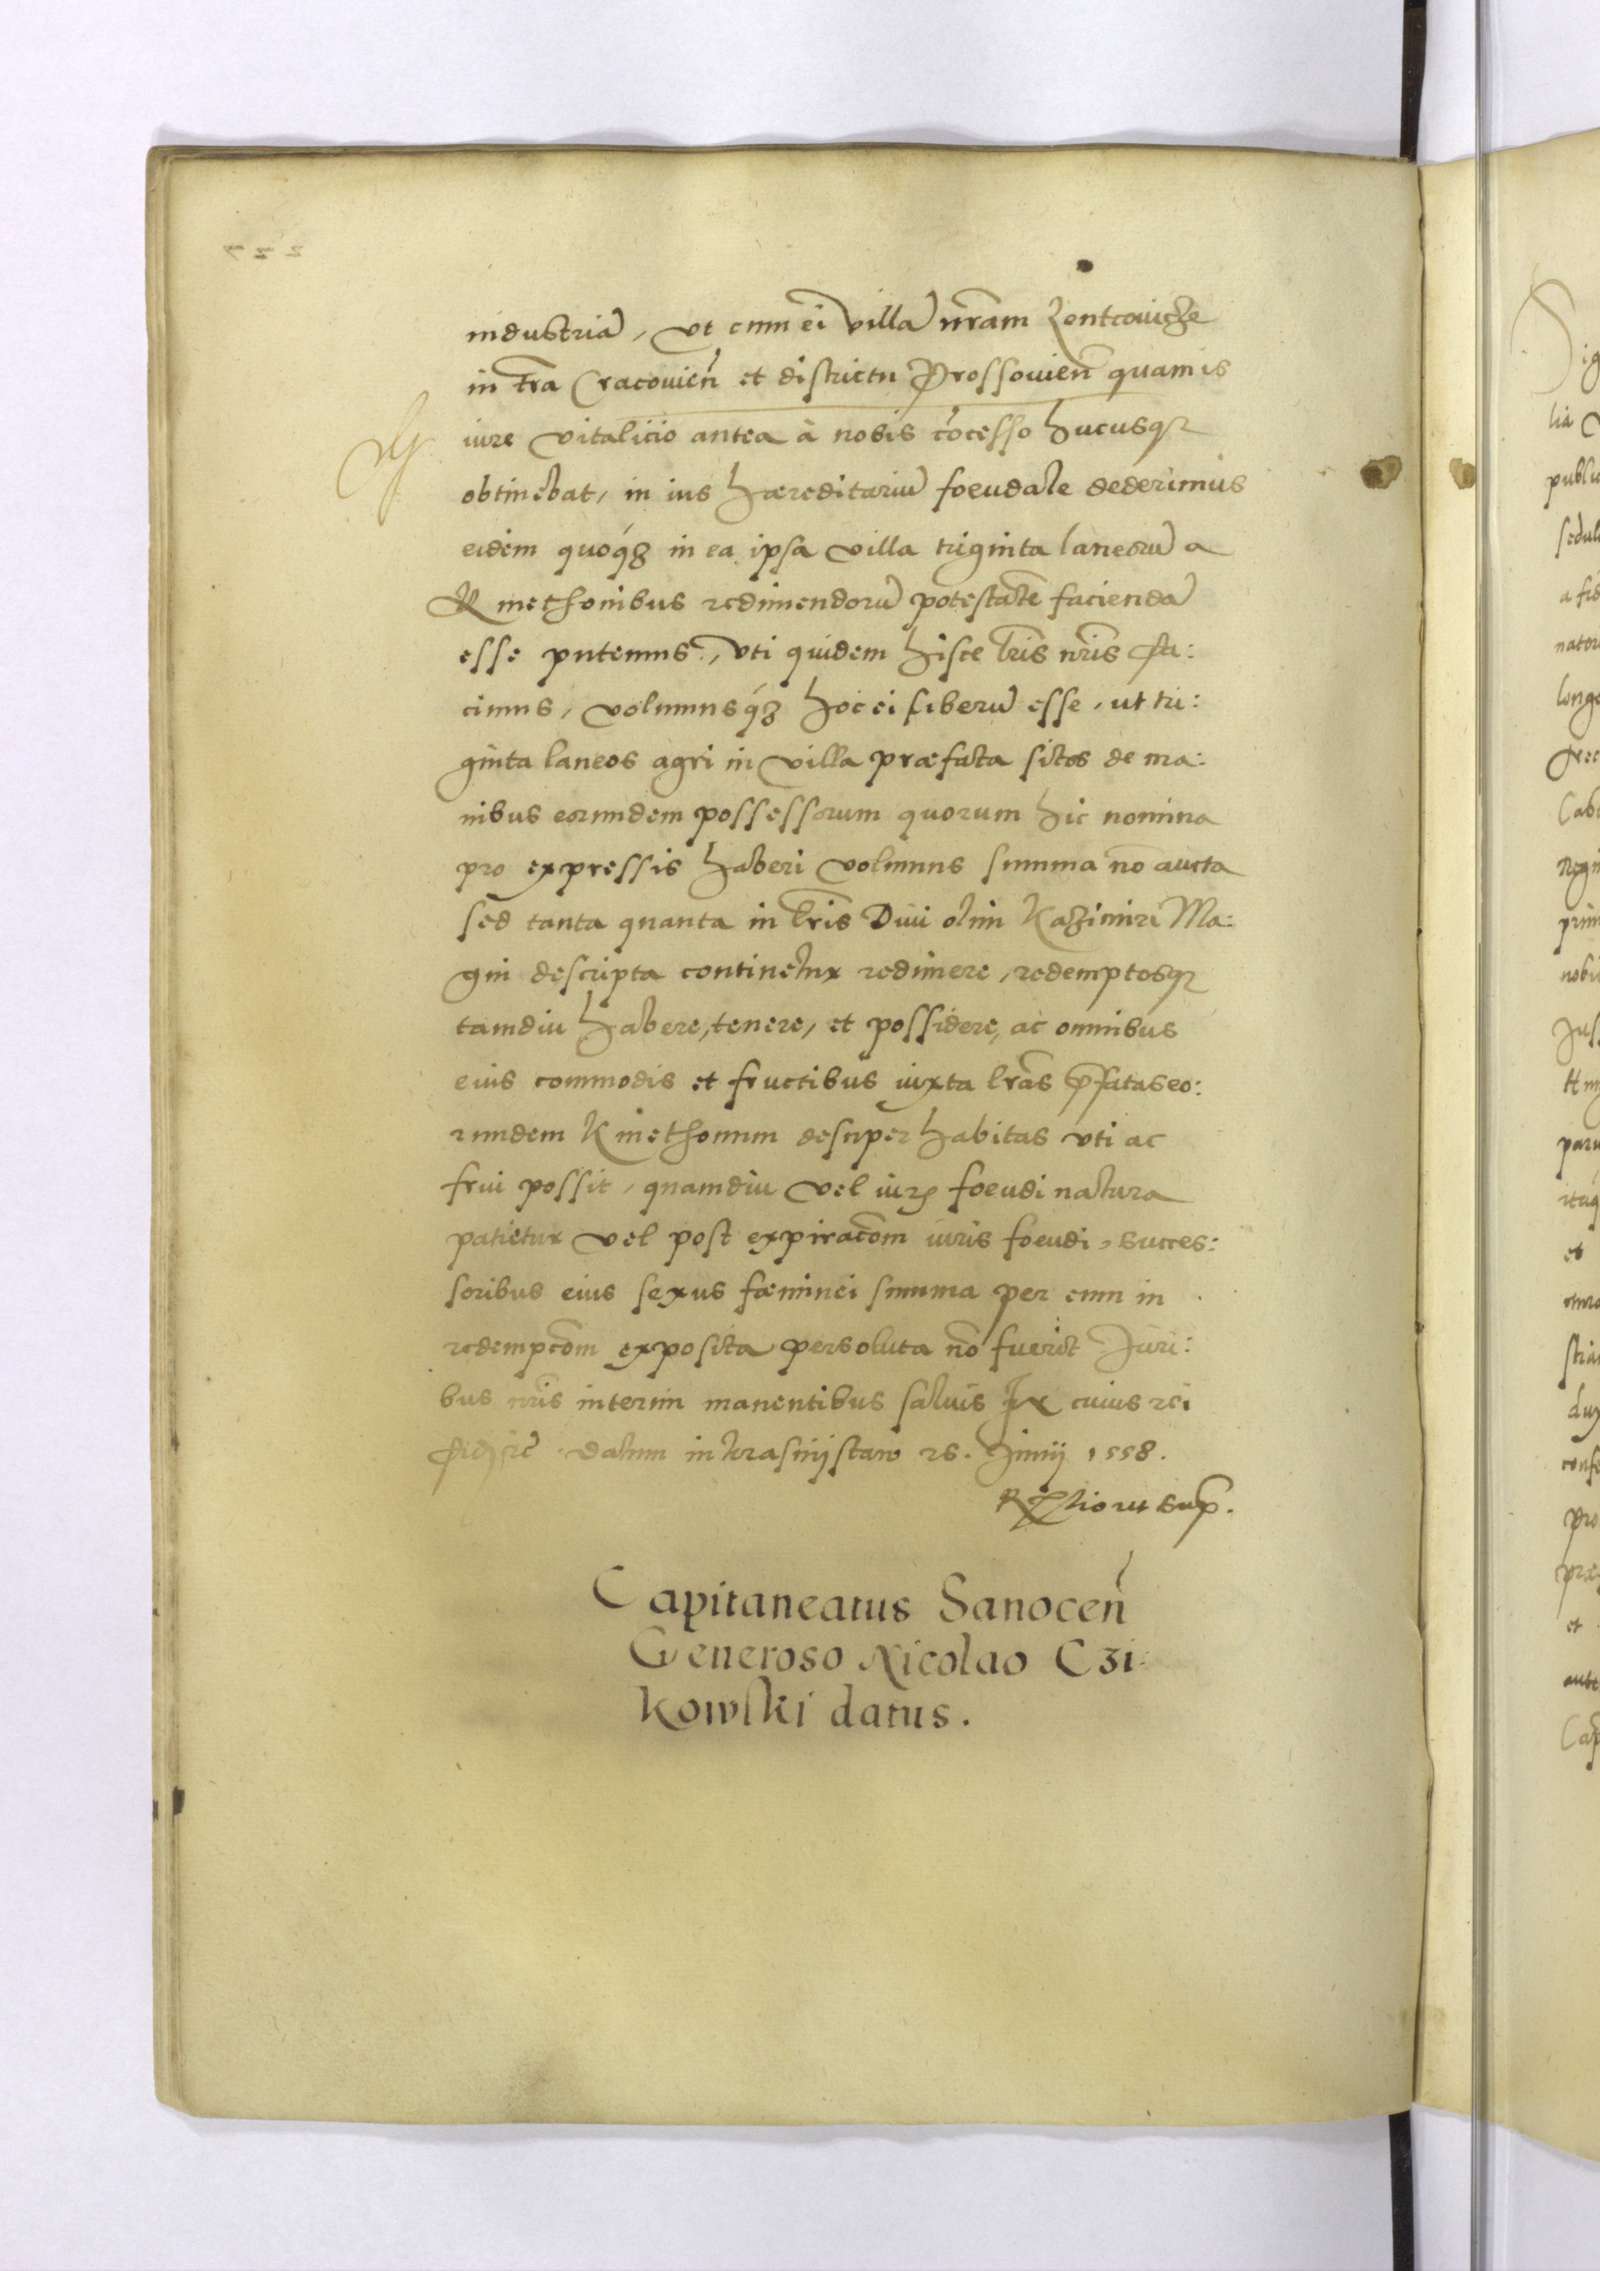 industriã, ut cum ei villã nr̃am Zentcovicze
in tr̃a Cracovieñ et districtu Prossovieñ quam is
iure vitalicio antea à nobis cõcesso hucusq̃
obtinebat, in ius hæreditariũ foeudale dederimus
eidem quoq́ꝫ in ea ipsa villa triginta laneorũ a
Kmethonibus redimendorũ potestatẽ faciendã
esse putemus, uti quidem hisce lr̃is nr̃is fa:
cimus, volumusq́ꝫ hoc ei liberũ esse, ut tri:
ginta laneos agri in villa præfata sitos de ma:
nibus eorundem possessorum quorum hic nomina
pro expressis haberi volumus summa nõ aucta
sed tanta quanta in lr̃is Divi olim Kazimiri Ma:
gni descripta continetur redimere, redemptosq̃
tamdiu habere, tenere, et possidere, ac omnibus
eius commodis et fructibus iuxta lr̃as p̃fatas eo:
rundem Kmethonum desuper habitas uti ac
frui possit, quamdiu vel iuris foeudi natura
patietur vel post expiracõm iuris foeudi, succes:
soribus eius sexus fæminei summa per eum in
redempcõm exposita persoluta nõ fuerit Juri:
bus nr̃is interim manentibus salvis In cuius rei
datum in Krasnijstaw 26. Junij 1558.
Rl̃tio ut sup̃.
Capitaneatus Sanoceñ
Generoso Nicolao Czi:
kowski datus.